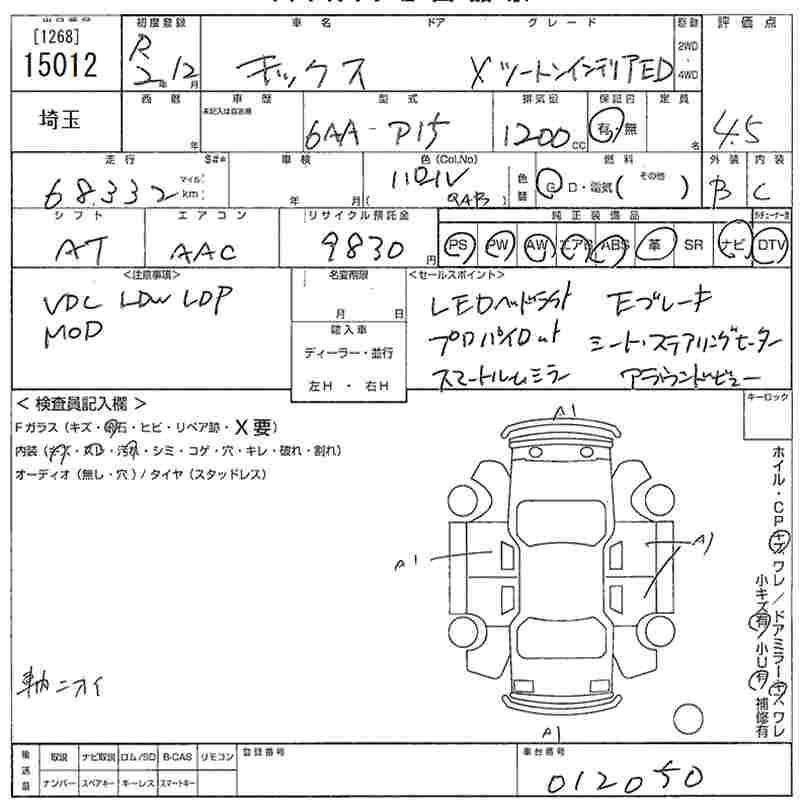 初度登録 車名 ドア グレード 駆動 評価点
[1268]
15012
R
2年12月
キックス
X ツートンインテリアED
2WD
・
4WD
4.5
埼玉
西暦
年
車歴
未記入は自家用
型式
6AA-P15
排気量
1200cc
保証書
有・無
定員
名
走行 S#* 車検 色(Col,No) 燃料 外装 内装
68.332
マイル
km
年 月
( QAB )
色替
G・D・電気( その他 )
B
C
シフト エアコン リサイクル預託金 純正装備品
AT
AAC
9830円
PS PW AW エアB ABS 革 SR ナビ DTV
<注意事項>
VDC LDW LDP
MOD
名変期限
月 日
輸入車
ディーラー・並行
左H ・ 右H
<セールスポイント>
LEDヘッドライト Eブレーキ
プロパイロット シート・ステアリングヒーター
スマートルームミラー アラウンドビュー
< 検査員記入欄 >
Fガラス(キズ・飛石・ヒビ・リペア跡・X要)
内装(キズ・スレ・汚れ・シミ・コゲ・穴・キレ・破れ・割れ)
オーディオ(無し・穴)/タイヤ(スタッドレス)
キーロック
A1
A1
A1
A1
ホイル・CPキズワレ/ドアミラーキズワレ
小キズ有 小U有 補修有
車内ニオイ
後送品
取説 ナビ取説 ロム/SD B-CAS リモコン
ナンバー スペアキー キーレス スマートキー
登録番号
車台番号
012050